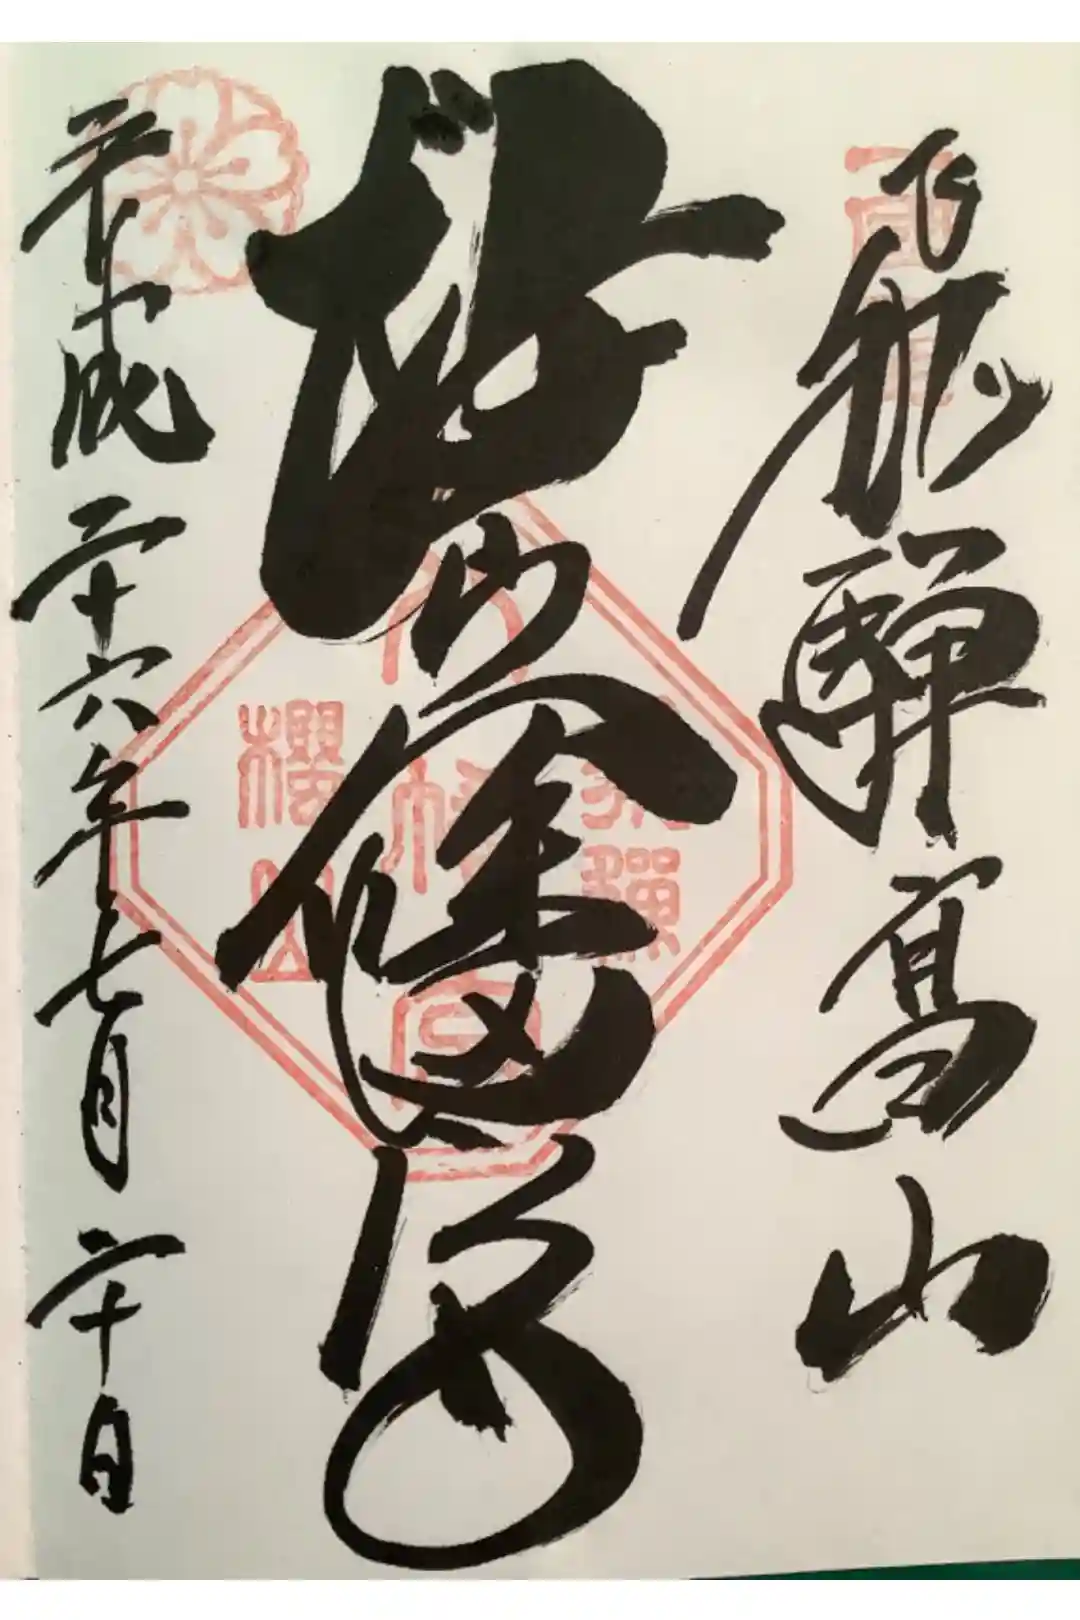 飛騨高山
桜山八幡宮
平成二十六年七月二十日
飛騨
八幡宮
櫻山